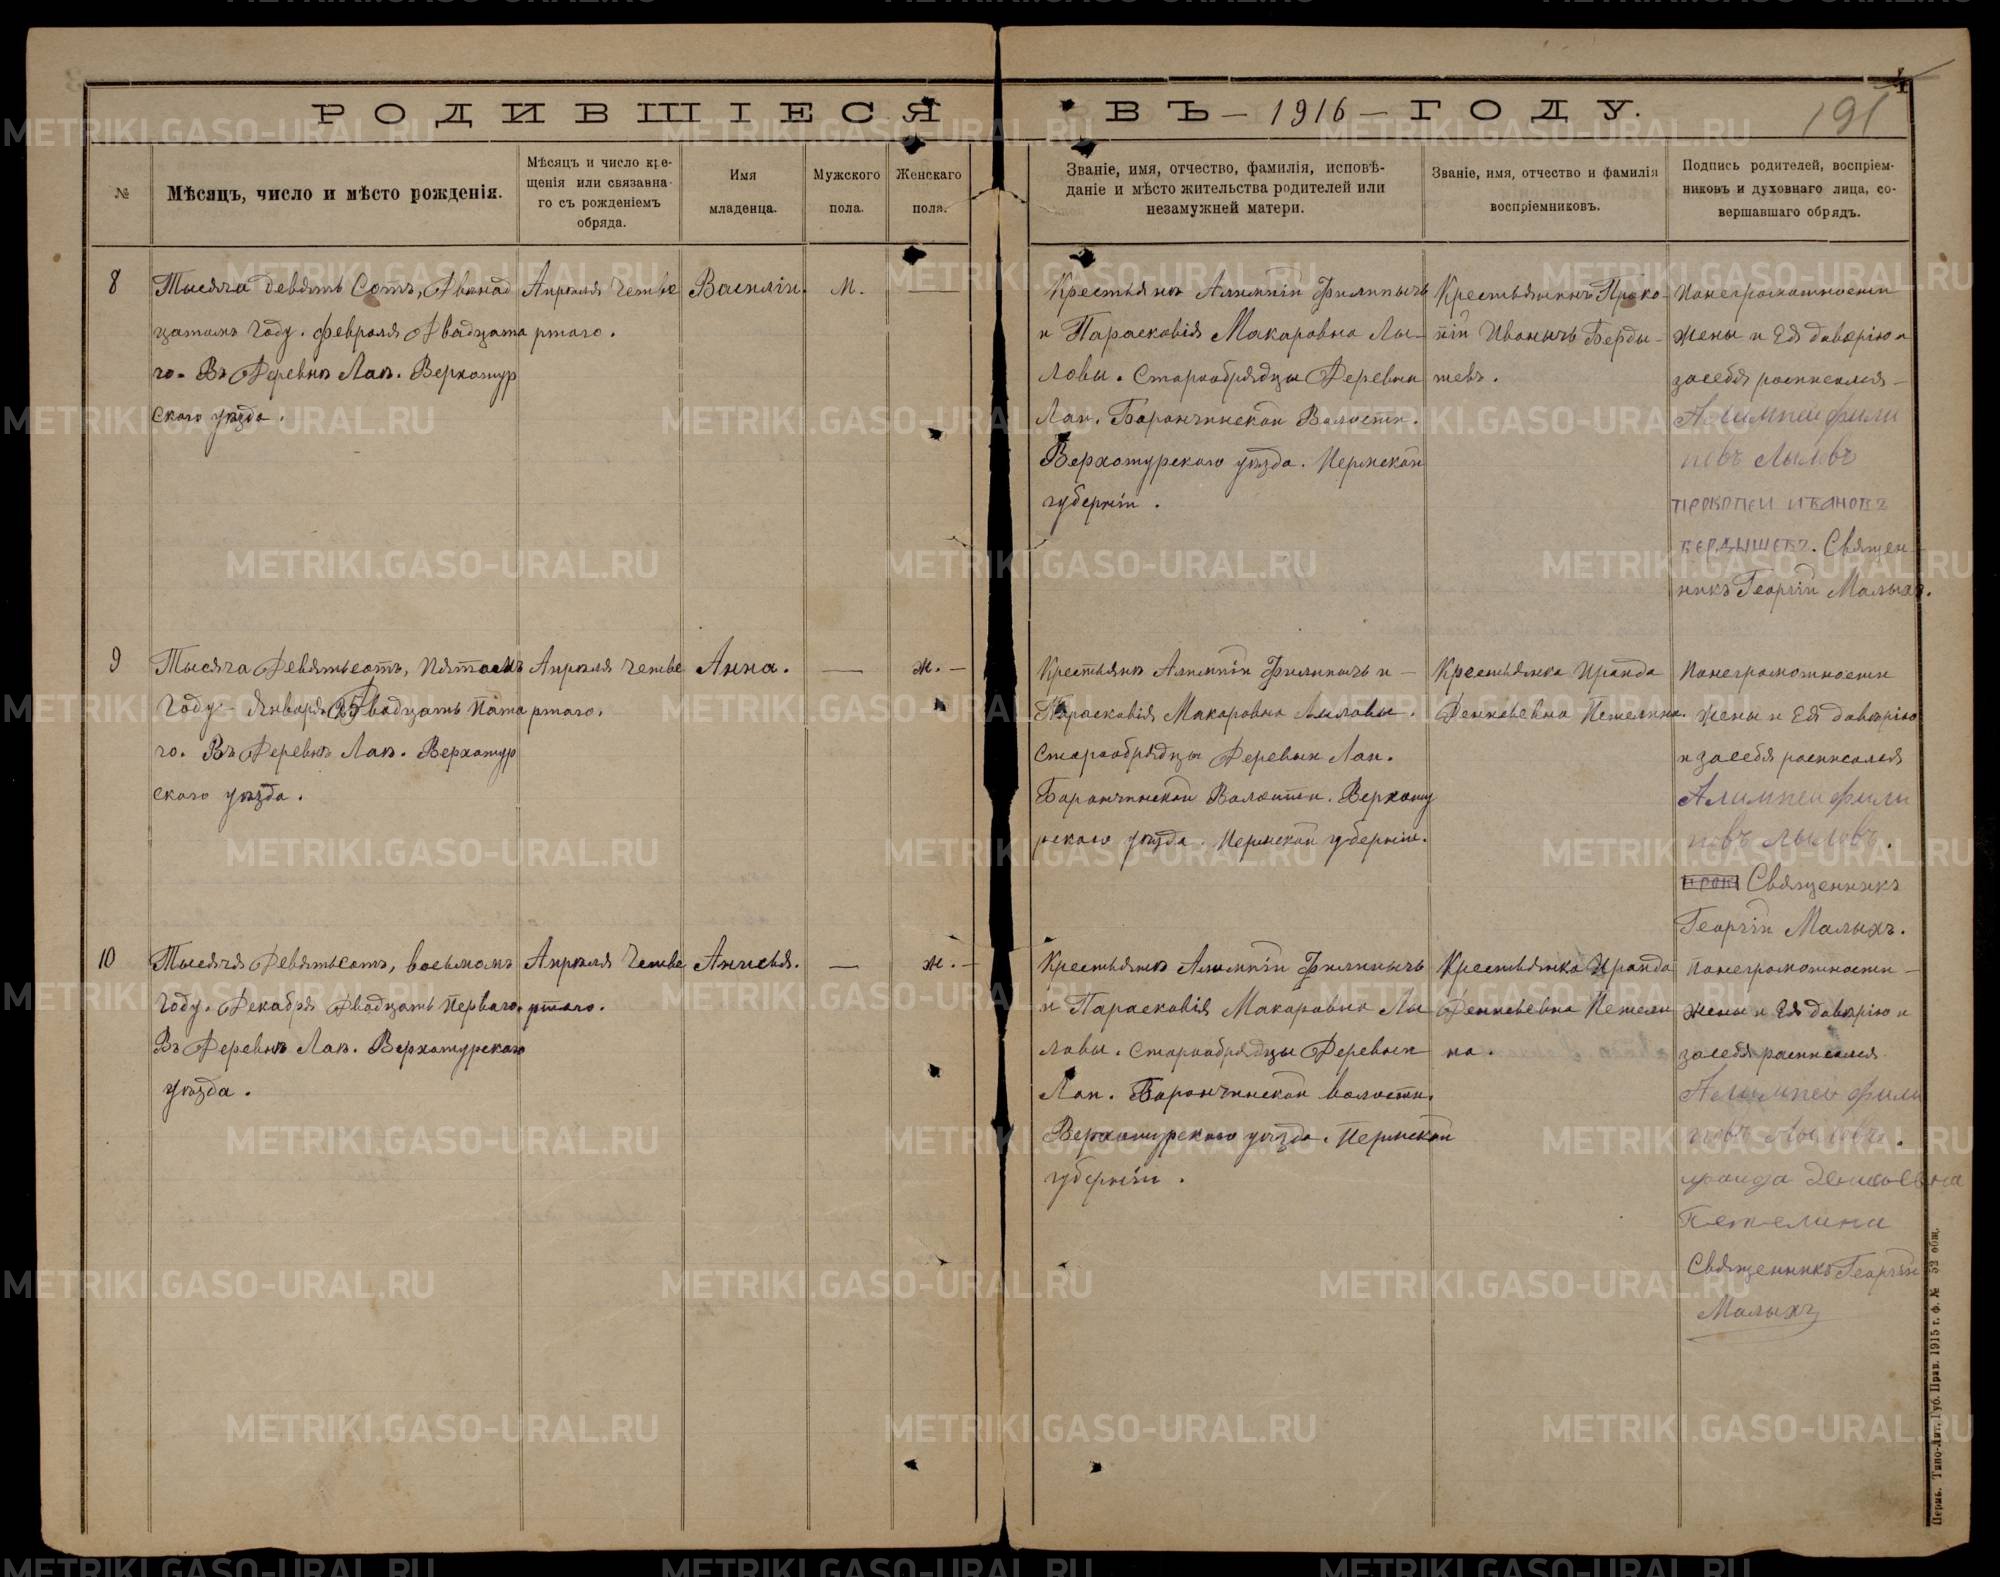 РОДИВШІЕСЯ
ВЪ — 1916 — ГОДУ.
191
№
Мѣсяцъ, число и мѣсто рожденія.
Мѣсяцъ и число кре-
щенія или связанна-
го съ рожденіемъ
обряда.
Имя
младенца.
Мужского
пола.
Женскаго
пола.
Званіе, имя, отчество, фамилія, исповѣ-
даніе и мѣсто жительства родителей или
незамужней матери.
Званіе, имя, отчество и фамилія
воспріемниковъ.
Подпись родителей, воспріем-
никовъ и духовнаго лица, со-
вершавшаго обрядъ.
8
Тысяча девять Сотъ, Двенад
цатомъ Году. февраля двадцата
го. Въ Деревнѣ Лая. Верхотур
ского уѣзда.
Апрѣля Четве
ртого.
Василіи.
м.
Крестьянѣ Алимпіи Филипычъ
и Парасковія Макаровна Лы-
ловы. Старообрядцы Деревни
Лаи. Баранчинской Волости.
Верхотурского уѣзда. Пермской
губерніи.
Крестьянинъ Проко-
піи Иванычъ Берды-
шевъ.
Понеграмотности
жены и Ея доверію и
засебя росписался —
Алимпеи фили
повъ Лыловъ
прокопеи ивановъ
бердышевъ. Священ-
никъ Георгіи Малыхъ.
9
Тысяча Девятьсотъ, Пятомъ
Году Января 25 Двадцать Пята
го. Въ Деревнѣ Лая. Верхотур
ского уѣзда.
Апрѣля Четве
ртого.
Анна.
—
ж. —
Крестьянѣ Алимпіи Филипычъ и —
Парасковія Макаровна Лыловы.
Старообрядцы Деревни Лаи.
Баранчинской Волости. Верхоту
рского уѣзда. Пермской губерніи.
Крестьянка Ираида
Денисьевна Петелина.
Понеграмотности
жены и Ея доверію
и засебя росписался
Алимпеи фили
повъ Лыловъ.
прок Священникъ
Георгіи Малыхъ.
10
Тысяча Девятьсотъ, восьмомъ
Году. Декабря Двадцать Перваго.
Въ Деревнѣ Лая. Верхотурского
уѣзда.
Апрѣля Четве
ртого.
Анисья.
—
ж. —
Крестьянѣ Алимпіи Филипычъ
и Парасковія Макаровна Лы
ловы. Старообрядцы Деревни
Лаи. Баранчинской волости.
Верхотурского уѣзда. Пермской
губерніи.
Крестьянка Ираида
Денисьевна Петели
на.
Понеграмотности —
жены и Ея доверію и
засебя росписался
Алимпеи фили
повъ Лыловъ.
ираида Денисьевна
Петелина
Священникъ Георгіи
Малыхъ
Пермь. Типо-Лит. Губ. Прав. 1915 г. ф. № 52 общ.
METRIKI.GASO-URAL.RU